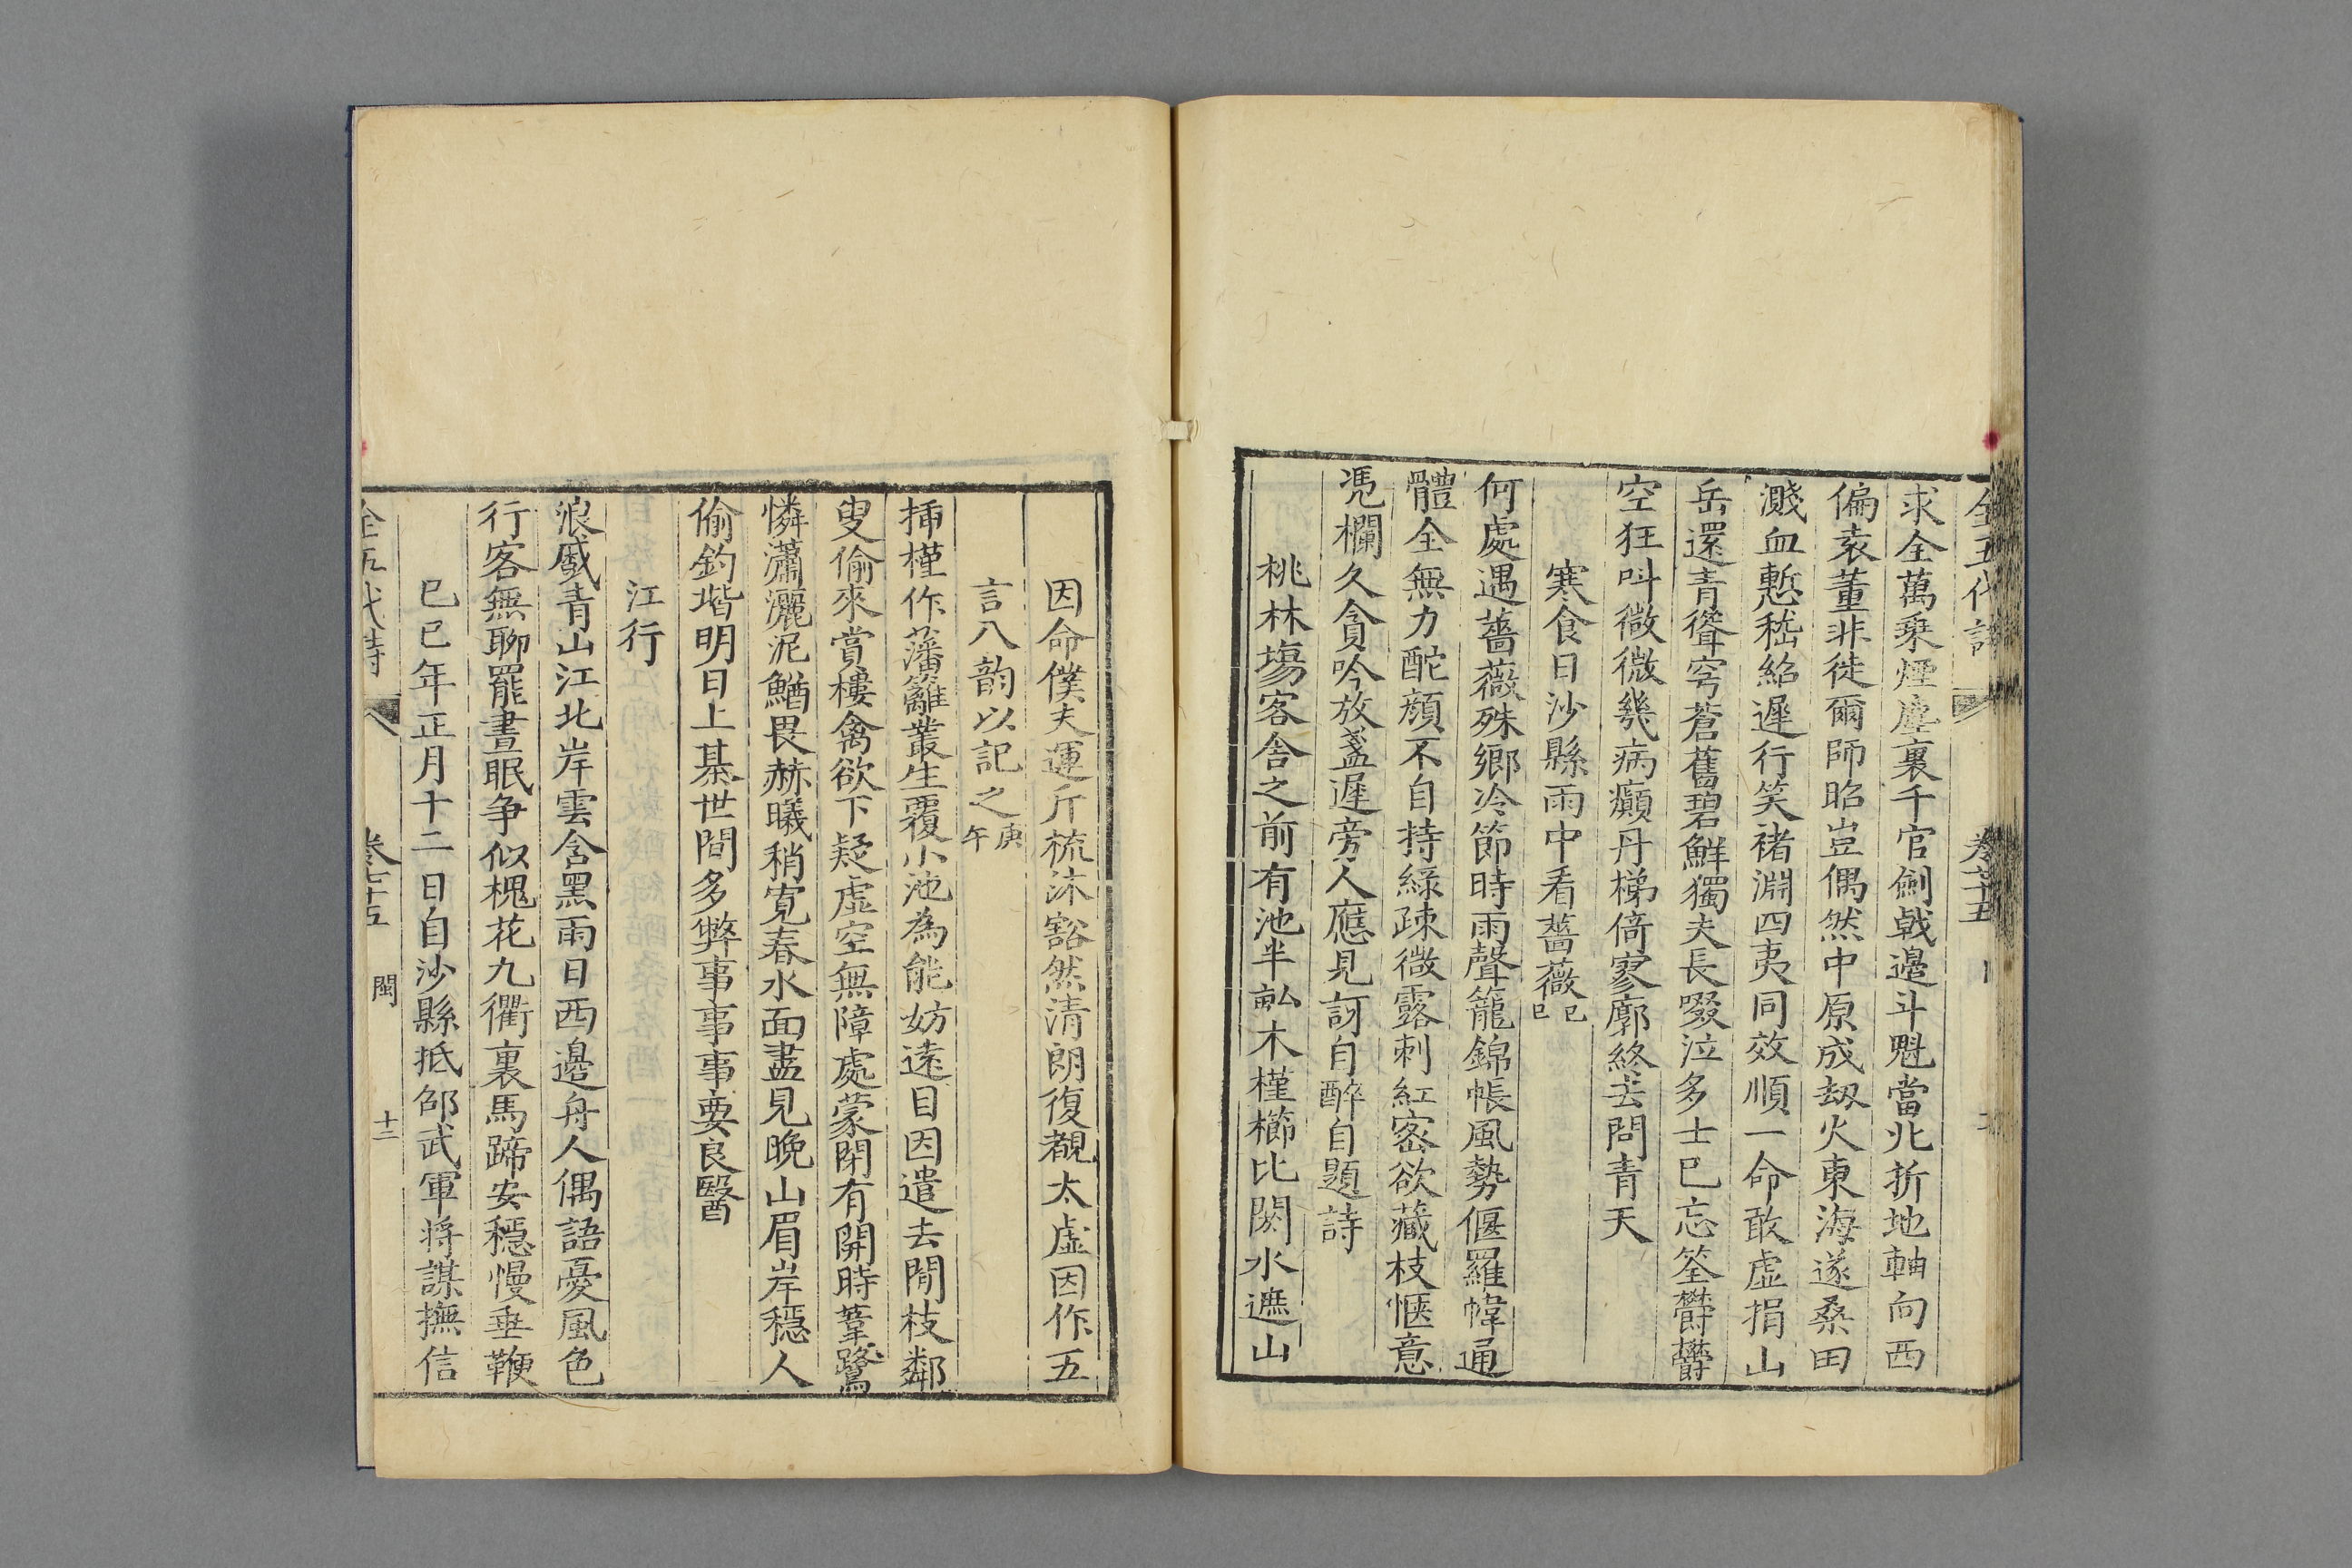 全五代詩 卷七十五
求全萬乘煙塵裏千官劍戟邊斗魁當北折地軸向西
偏袁董非徒爾師昭豈偶然中原成刼火東海遂桑田
濺血慙嵇紹遲行笑褚淵四夷同效順一命敢虛捐山
岳還青聳穹蒼舊碧鮮獨夫長啜泣多士已忘筌欝欝
空狂叫微微幾病癲丹梯倚寥廓終去問青天
寒食日沙縣雨中看薔薇己巳
何處遇薔薇殊鄉冷節時雨聲籠錦帳風勢偃羅幃通
體全無力酡顏不自持綠疎微露刺紅密欲藏枝愜意
凭欄久貪吟放盞遲旁人應見訝自醉自題詩
桃林塲客舍之前有池半畝木槿櫛比閼水遮山
因命僕夫運斤梳沐豁然清朗復覩太虛因作五
言八韵以記之庚午
插槿作藩籬叢生覆小池為能妨遠目因遣去閒枝鄰
叟偷來賞棲禽欲下疑虛空無障處蒙閉有開時葦鷺
憐瀟灑泥鰌畏赫曦稍寬春水面盡見晚山眉岸穩人
偷釣堦明日上棊世間多弊事事事要良醫
江行
浪蹙青山江北岸雲含黑雨日西邊舟人偶語憂風色
行客無聊罷晝眠爭似槐花九衢裏馬蹄安穩慢垂鞭
己巳年正月十二日自沙縣抵邵武軍將謀撫信
全五代詩 卷七十五 閩 十二